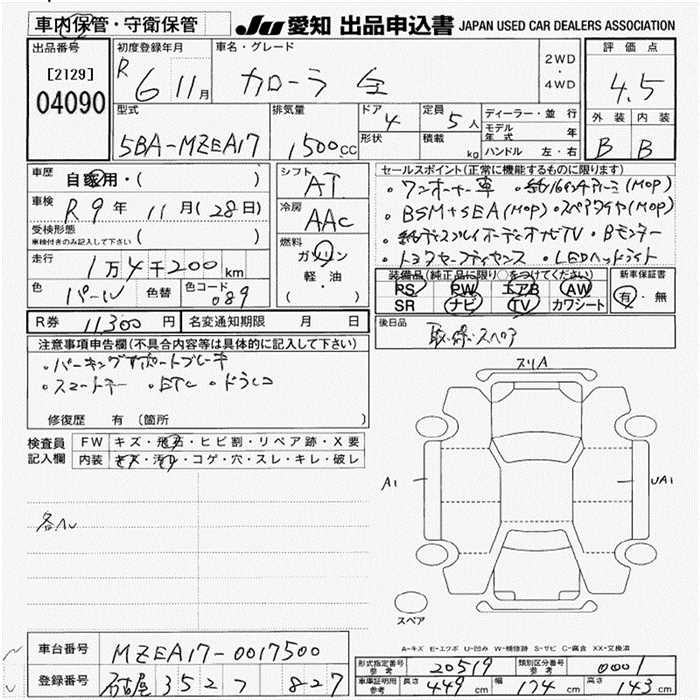 車内保管・守衛保管
JU 愛知 出品申込書 JAPAN USED CAR DEALERS ASSOCIATION
出品番号
[2129]
04090
初度登録年月
R 6 11月
車名・グレード
カローラ
2WD・4WD
評価点
4.5
外装 内装
B B
型式
5BA-MZEA17
排気量
1500cc
ドア 4
形状
定員 5人
積載 kg
ディーラー・並行
モデル年式 年
ハンドル 左・右
車歴
自家用・( )
車検
R 9年 11月(28日)
受検形態
車検付きのみ記入して下さい ( )
走行
1万4千200km
色 パール 色替 色コード 089
シフト
AT
冷房
AAC
燃料
ガソリン
軽・油
( )
セールスポイント(正常に機能するものに限ります)
・ワンオーナー車 ・純16インチアルミ(MOP)
・BSM+SEA(MOP) ・スペアタイヤ(MOP)
・純ディスプレイオーディオナビTV ・Bモニター
・トヨタセーフティセンス ・LEDヘッドライト
装備品(純正品に限り○をつけてください)
PS PW エアB AW
SR ナビ TV カワシート
新車保証書
有・無
R券 11300円 名変通知期限 月 日
後日品
取・保・スペア
注意事項申告欄(不具合内容等は具体的に記入して下さい)
・パーキングサポートブレーキ
・スマートキー ・ETC ・ドラレコ
修復歴 有(箇所 )
検査員記入欄
FW キズ・飛石・ヒビ割・リペア跡・X要
内装 キズ・汚れ・コゲ・穴・スレ・キレ・破レ
スリA
A1
UA1
各ヘ
スペア
A-キズ E-エクボ U-凹み W-補修跡 S-サビ C-腐食 XX-交換済
車台番号 MZEA17-0017500
登録番号 名古屋 352 フ 827
形式指定番号 参考 20519 類別区分番号 参考 0001
車庫証明用 参考 長さ 449cm 幅 174cm 高さ 143cm